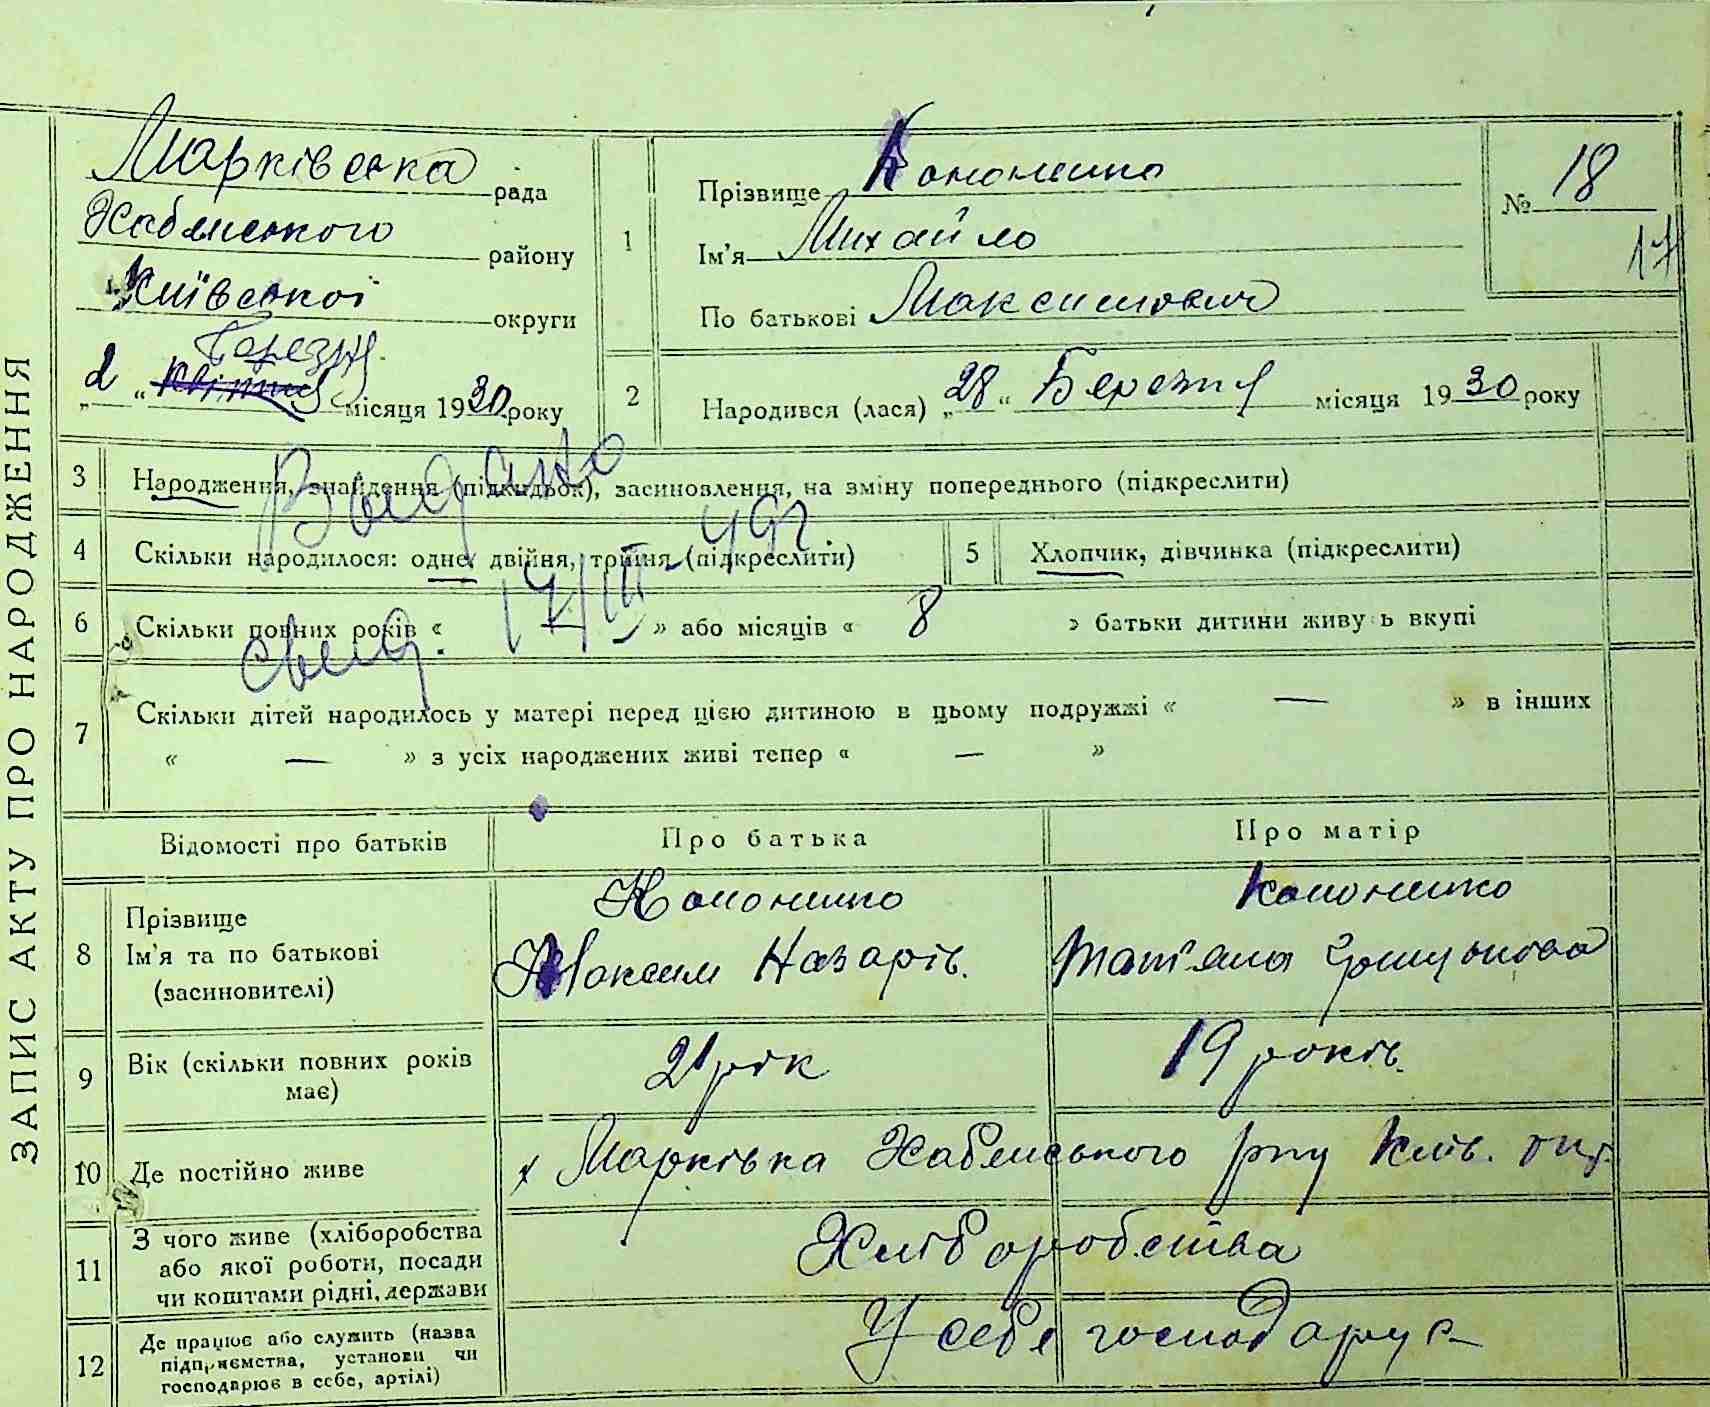 ЗАПИС АКТУ ПРО НАРОДЖЕННЯ
Марківська рада
Хабенського району
Київської округи
Березня
2 „ “ Квітня місяця 1930 року
1
Прізвище Кононенко
Ім'я Михайло
По батькові Максимович
№ 18
17
2 Народився (лася) „28“ Березня місяця 1930 року
3 Народження, знайдення (підкидьок), засиновлення, на зміну попереднього (підкреслити)
4 Скільки народилося: одне, двійня, трійня (підкреслити)
5 Хлопчик, дівчинка (підкреслити)
Выдано
17/III-49г
свид.
6 Скільки повних років « » або місяців « 8 » батьки дитини живу ь вкупі
7 Скільки дітей народилось у матері перед цією дитиною в цьому подружжі « — » в інших
« — » з усіх народжених живі тепер « — »
Відомості про батьків Про батька Про матір
8 Прізвище
Ім'я та по батькові
(засиновителі)
Кононенко
Максим Назарів.
Кононенко
Тат'яна
9 Вік (скільки повних років має) 21 рік 19 років.
10 Де постійно живе х Марківка Хабенського р-ну Київ. окр.
11 З чого живе (хліборобства
або якої роботи, посади
чи коштами рідні, держави
Хліборобства
12 Де працює або служить (назва
підприємства, установи чи
господарює в себе, артілі)
У себе господарує